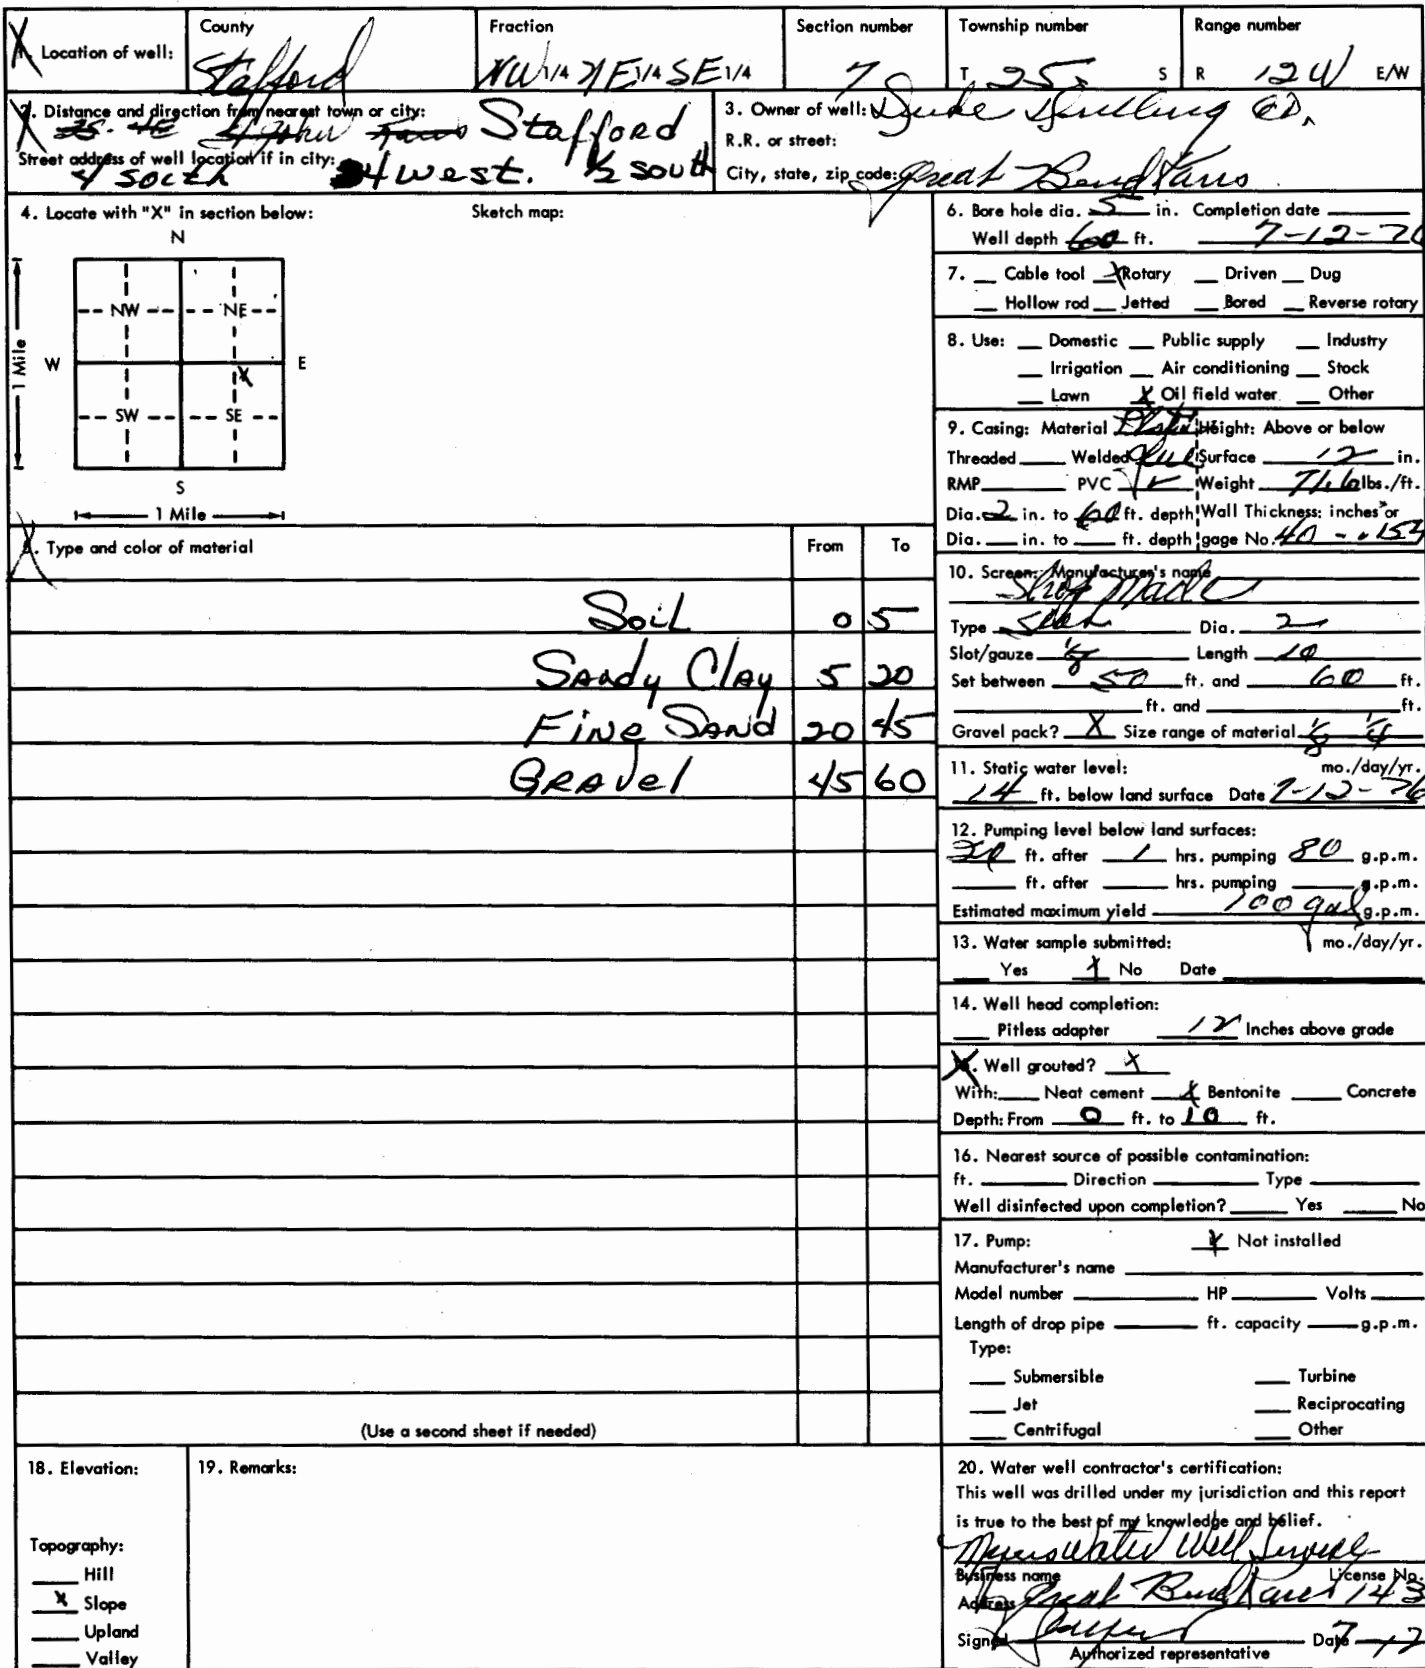 1. Location of well: County Stafford Fraction NW 1/4 NE 1/4 SE 1/4 Section number 7 Township number T 25 S Range number R 12W E/W
2. Distance and direction from nearest town or city: Stafford
Street address of well location if in city:
4 South 4 west. 1/2 south
3. Owner of well: Duke Drilling CO.
R.R. or street:
City, state, zip code: Great Bend Kans
4. Locate with "X" in section below: Sketch map:
N
NW NE
W E
X
SW SE
S
1 Mile
1 Mile
5. Type and color of material From To
Soil 0 5
Sandy Clay 5 20
Fine Sand 20 45
Gravel 45 60
(Use a second sheet if needed)
6. Bore hole dia. 5 in. Completion date
Well depth 60 ft. 7-12-76
7. Cable tool X Rotary Driven Dug
Hollow rod Jetted Bored Reverse rotary
8. Use: Domestic Public supply Industry
Irrigation Air conditioning Stock
Lawn X Oil field water Other
9. Casing: Material Plastic Height: Above or below
Threaded Welded Glue Surface 12 in.
RMP PVC Weight lbs./ft.
Dia. 2 in. to 60 ft. depth Wall Thickness: inches or
Dia. in. to ft. depth gage No. 40 - .154
10. Screen: Manufacturer's name
Shop Made
Type Dia. 2
Slot/gauze 1/8 Length 10
Set between 50 ft. and 60 ft.
ft. and ft.
Gravel pack? X Size range of material 1/8 1/4
11. Static water level: mo./day/yr.
14 ft. below land surface Date 7-12-76
12. Pumping level below land surfaces:
ft. after 1 hrs. pumping 80 g.p.m.
ft. after hrs. pumping g.p.m.
Estimated maximum yield 100 gal g.p.m.
13. Water sample submitted: mo./day/yr.
Yes X No Date
14. Well head completion:
Pitless adapter 12 Inches above grade
Well grouted? X
With: Neat cement X Bentonite Concrete
Depth: From 0 ft. to 10 ft.
16. Nearest source of possible contamination:
ft. Direction Type
Well disinfected upon completion? Yes No
17. Pump: X Not installed
Manufacturer's name
Model number HP Volts
Length of drop pipe ft. capacity g.p.m.
Type:
Submersible Turbine
Jet Reciprocating
Centrifugal Other
18. Elevation:
Topography:
Hill
X Slope
Upland
Valley
19. Remarks:
20. Water well contractor's certification:
This well was drilled under my jurisdiction and this report
is true to the best of my knowledge and belief.
Myers Water Well Service
Business name License No.
Address Great Bend Kans 143
Signed Date
Authorized representative